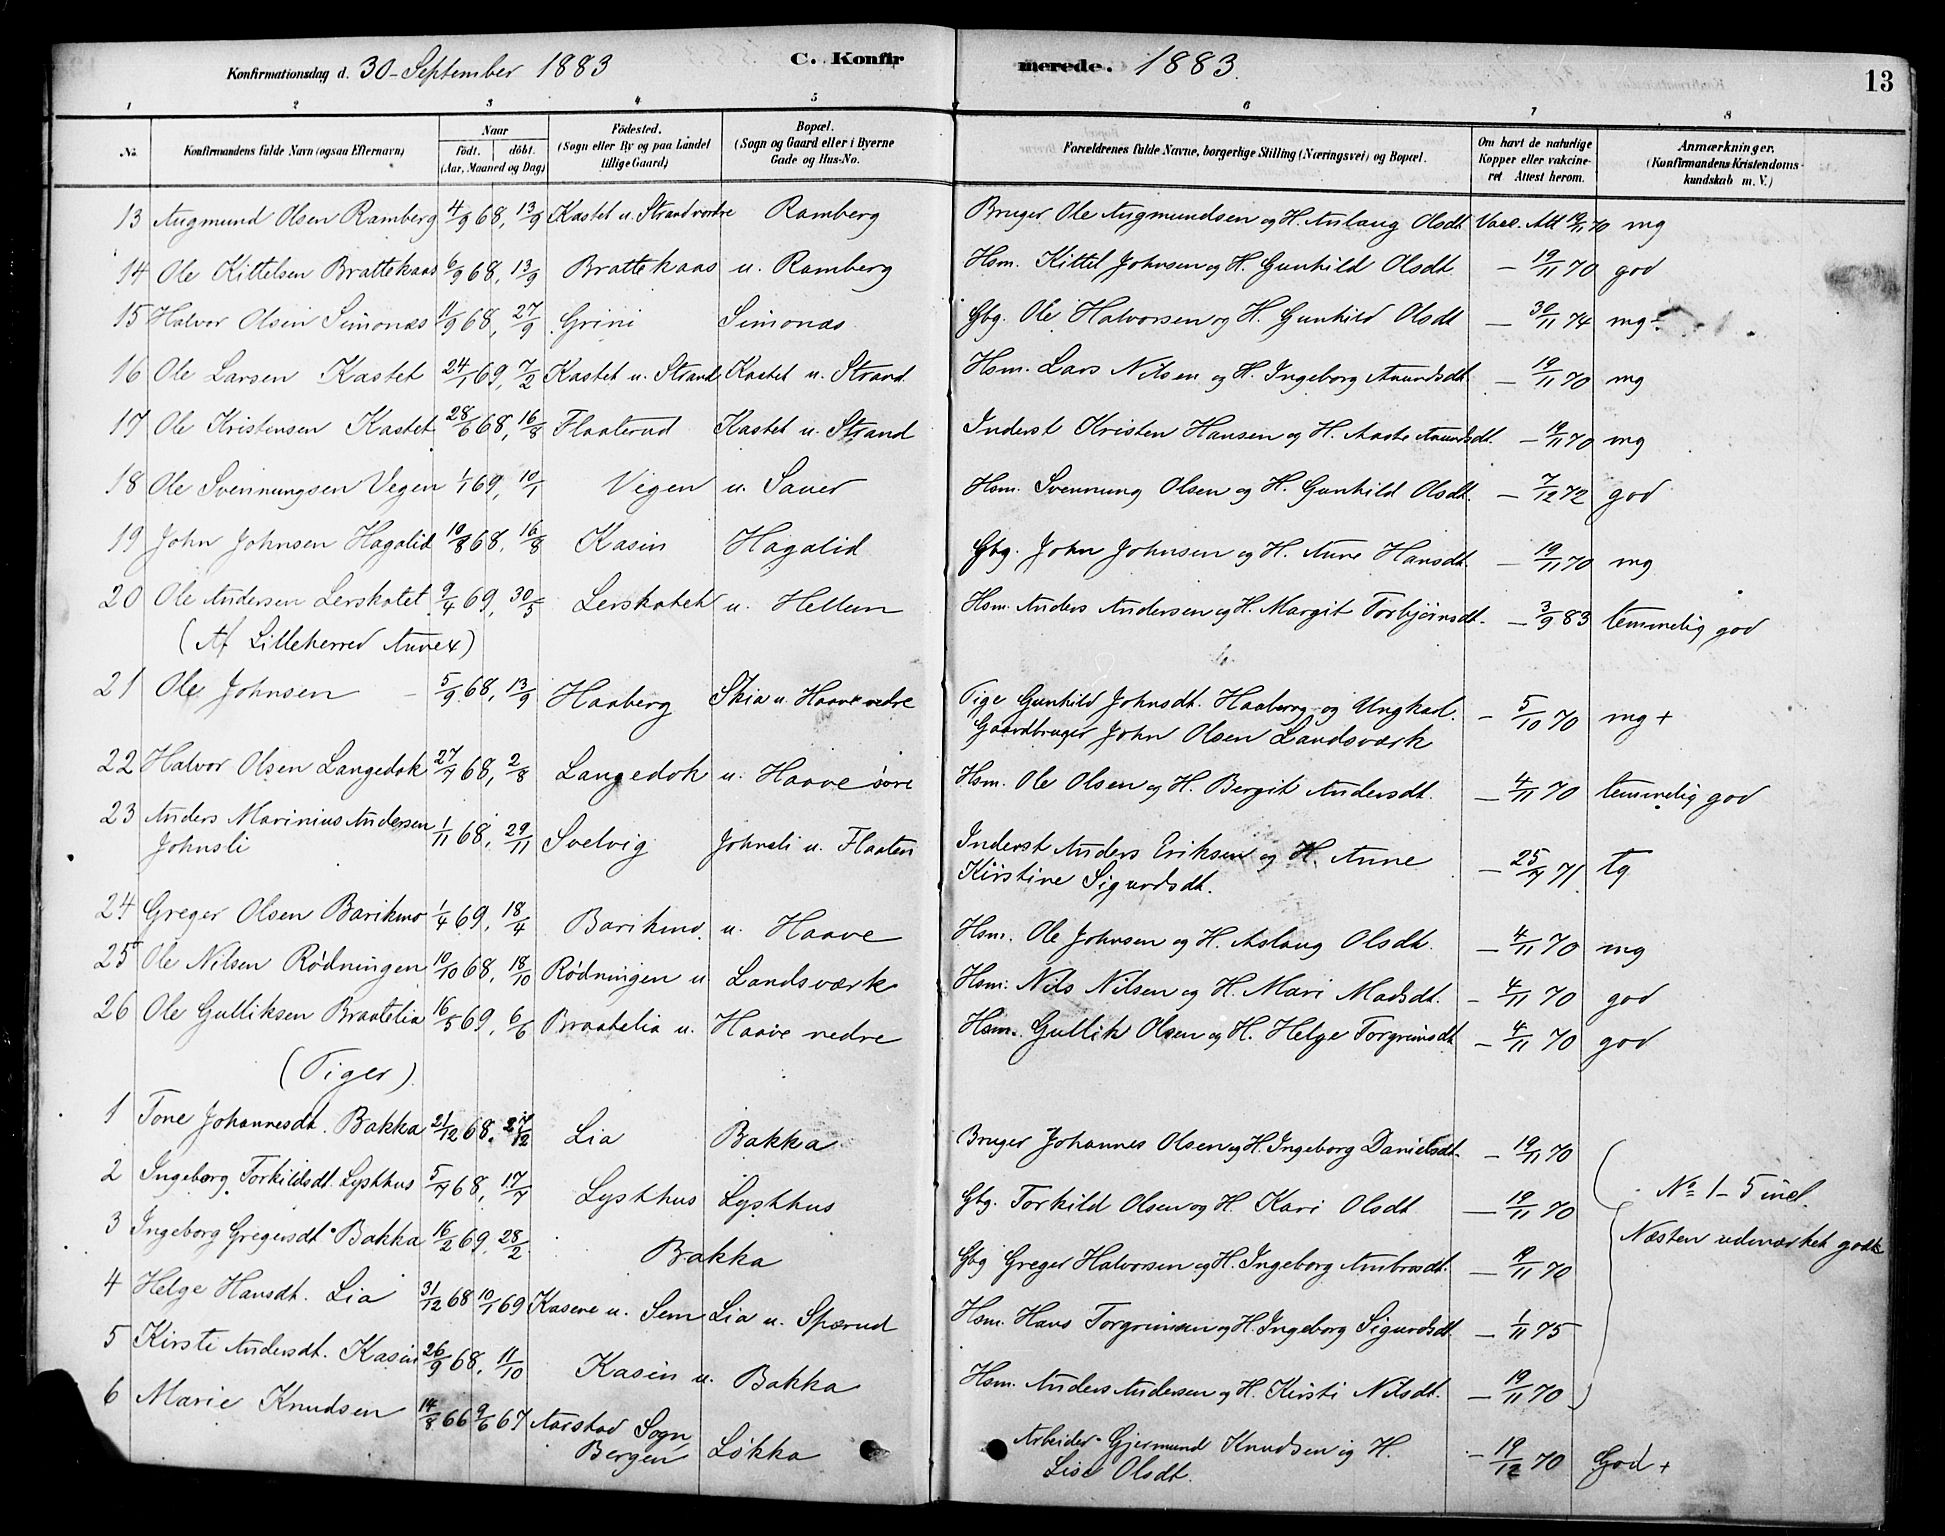 Konfirmationsdag d. 30 - September 1883 C. Konfirmerede. 1883. 13
1 2 3 4 5 6 7 8
No. Konfirmandens fulde Navn (ogsaa Efternavn) Naar født. døbt. (Aar, Maaned og Dag) Fødested. (Sogn eller By og paa Landet tillige Gaard) Bopæl. (Sogn og Gaard eller i Byerne Gade og Hus-No. Forældrenes fulde Navne, borgerlige Stilling (Næringsvei) og Bopæl. Om havt de naturlige Kopper eller vakcineret Attest herom. Anmærkninger. (Konfirmandens Kristendomskundskab m. V.)
13 Augmund Olsen Ramberg 4/9 68, 13/9 Kastet u. Strand vordre Ramberg Bruger Ole Augmundsen og H. Anlaug Olsdt. Vacc. Att 19/11 70 mg
14 Ole Kittelsen Brattekaas 6/9 68, 13/9 Brattekaas u. Ramberg Hsm. Kittel Johnsen og H. Gunhild Olsdt. — 19/11 70 god
15 Halvor Olsen Simonas 11/9 68, 27/9 Grini Simonas Gbg. Ole Halvorsen og H. Gunhild Olsdt — 30/11 74 mg ÷
16 Ole Larsen Kastet 24/1 69, 7/2 Kastet u. Strand Kastet u. Strand. Hsm. Lars Nilsen og H. Ingeborg Aamundsdt. — 19/11 70 mg
17 Ole Kristensen Kastet 28/6 68, 16/8 Flaaterud Kastet u. Strand Inderst Kristen Hansen og H. Aaste Aamundsdt. — 19/11 70 mg
18 Ole Svennungsen Vegen 1/1 69, 10/1 Vegen u. Sauer Hsm. Svennung Olsen og H. Gunhild Olsdt. — 7/12 72 god
19 John Johnsen Hagalid 10/8 68, 16/8 Kasin Hagalid Gbg. John Johnsen og H. Anne Hansdt. — 19/11 70 mg
20 Ole Andersen Lerskotet 9/4 69, 30/5 Lerskotet u. Hellem Hsm. Anders Andersen og H. Margit Torbjørnsdt. — 3/9 83 temmelig god
(Af Lilleherred Annex)
21 Ole Johnsen — 5/9 68, 13/9 Haaberg Skia u. Haave nedre Pige Gunhild Johnsdt. Haaberg og Ungkarl. — 5/10 70 mg +
Gaardbruger John Olsen Landsværk
22 Halvor Olsen Langedok 27/7 68, 2/8 Langedok u. Haave søre Hsm. Ole Olsen og H. Bergit Andersdt. — 4/11 70 temmelig god
23 Anders Marinius Andersen 1/11 68, 29/11 Svelvig Johnsli u. Flaaten Inderst Anders Eriksen og H. Anne — 25/7 71. tg
Johnsli Kirstine Sigurdsdt.
24 Greger Olsen Barikmo 1/4 69, 18/4 Barikmo. u. Haave Hsm. Ole Johnsen og H. Aslaug Olsdt. — 4/11 70 mg
25 Ole Nilsen Rødningen 10/10 68, 18/10 Rødningen u Landsværk Hsm. Nils Nilsen og H. Mari Madsdt. — 4/11 70 god
26 Ole Gulliksen Braatelia 16/5 69, 6/6 Braatelia u. Haave nedre Hsm. Gullik Olsen og H. Helge Torgrimsdt — 4/11 70 god
(Piger).
1 Tone Johannesdt. Bakka 21/12 68. 27/12 Lia Bakka Bruger Johannes Olsen og H. Ingeborg Danielsdt. — 19/11 70
2 Ingeborg Torkildsdt. Lysthus 5/7 68, 17/7 Lysthus Lysthus Gbg. Torkild Olsen og H. Kari Olsdt — 19/11 70 No 1 - 5 incl.
3 Ingeborg Gregersdt. Bakka 16/2 69, 28/2 Bakka Gbg Greger Halvorsen og H. Ingeborg Ambrosdt. — 19/11 70 Næsten udmærket gode
4 Helge Hansdt. Lia 31/12 68 10/1 69 Kasene u. Sem Lia u. Spærud Hsm. Hans Torgrimsen og H. Ingeborg Sigurdsdt. — 1/11 75
5 Kirsti Andersdt. Kasin 26/9 68, 11/10 Kasin u. Bakka Hsm. Anders Andersen og H. Kirsti Nilsdt. — 19/11 70
6 Marie Knudsen 14/8 66 9/6 67 Aarstad Sogn, Løkka Arbeider Gjermund Knudsen og H. — 19/12 70 God +
Bergen Lise Olsdt.